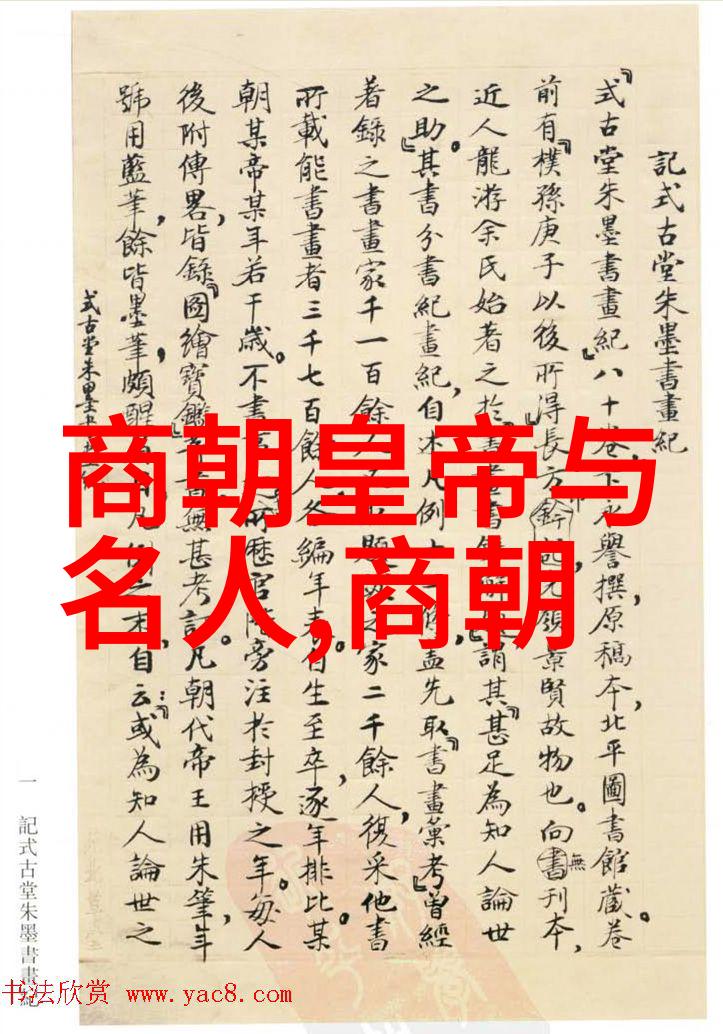 記式古堂朱墨書畫紀
『式古堂朱墨書畫紀』八十卷,卞永譽撰,原稿本,北平圖書館藏。卷
前有『樸孫庚子以後所得』長方
景賢故物也。向無書刊本,
近人龍游余氏始著之於
謂其『甚足為知人論世
之助。』其書分書紀畫紀,自述凡例十
條,蓋先取『書畫彙考』曾經
著錄之書畫家千一百餘人
之家二千餘人,復采他書
所載能書畫者三千七百餘人,各編年表。自生至卒,逐年排比某
朝某帝某年若干歲。不書
所歷官階旁注於封授之年。每人
後附傳畧,皆錄『圖繪寶鑑』
無甚考訂。凡朝代帝王用朱筆,年
號用藍筆,餘皆墨筆,頗醒
之末,自云:『或為知人論世之
式古堂朱墨書畫紀
一
記式古堂朱墨書畫紀
商朝皇帝与
名人,商朝
书法欣赏 www.yac8.com